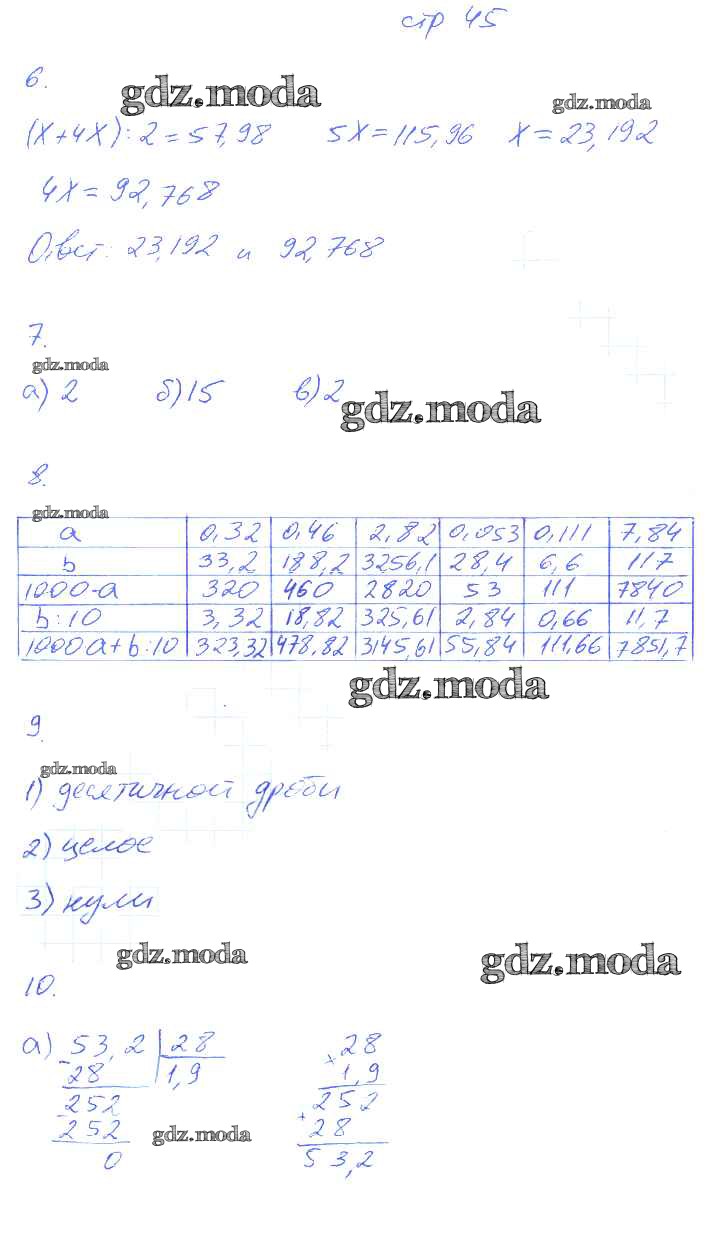 стр 45
6.
gdz.moda
gdz.moda
(x+4x):2=57,98 5x=115,96 x=23,192
4x=92,768
Ответ: 23,192 и 92,768
7.
gdz.moda
а) 2 б) 15 в) 2
gdz.moda
8.
gdz.moda
a 0,32 0,46 2,82 0,053 0,111 7,84
b 33,2 188,2 3256,1 28,4 6,6 117
1000·a 320 460 2820 53 111 7840
b:10 3,32 18,82 325,61 2,84 0,66 11,7
1000a+b:10 323,32 478,82 3145,61 55,84 111,66 7851,7
gdz.moda
9.
gdz.moda
1) десятичной дроби
2) целое
3) нули
gdz.moda
gdz.moda
10.
а) 53,2 | 28 28
- 28 1,9 × 1,9
252 252
- 252 + 28
gdz.moda
0 53,2